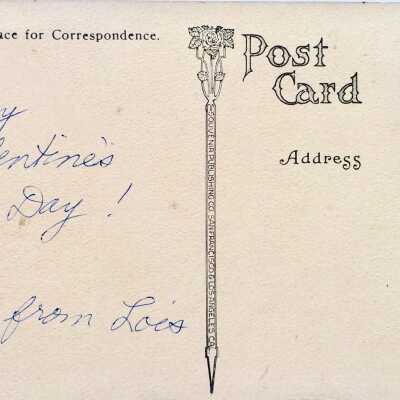 ace for Correspondence.
Post
Card
Address
y
entine's
Day!
from Lois
SOUVENIR PUBLISHING CO. SAN FRANCISCO & LOS ANGELES, CAL.